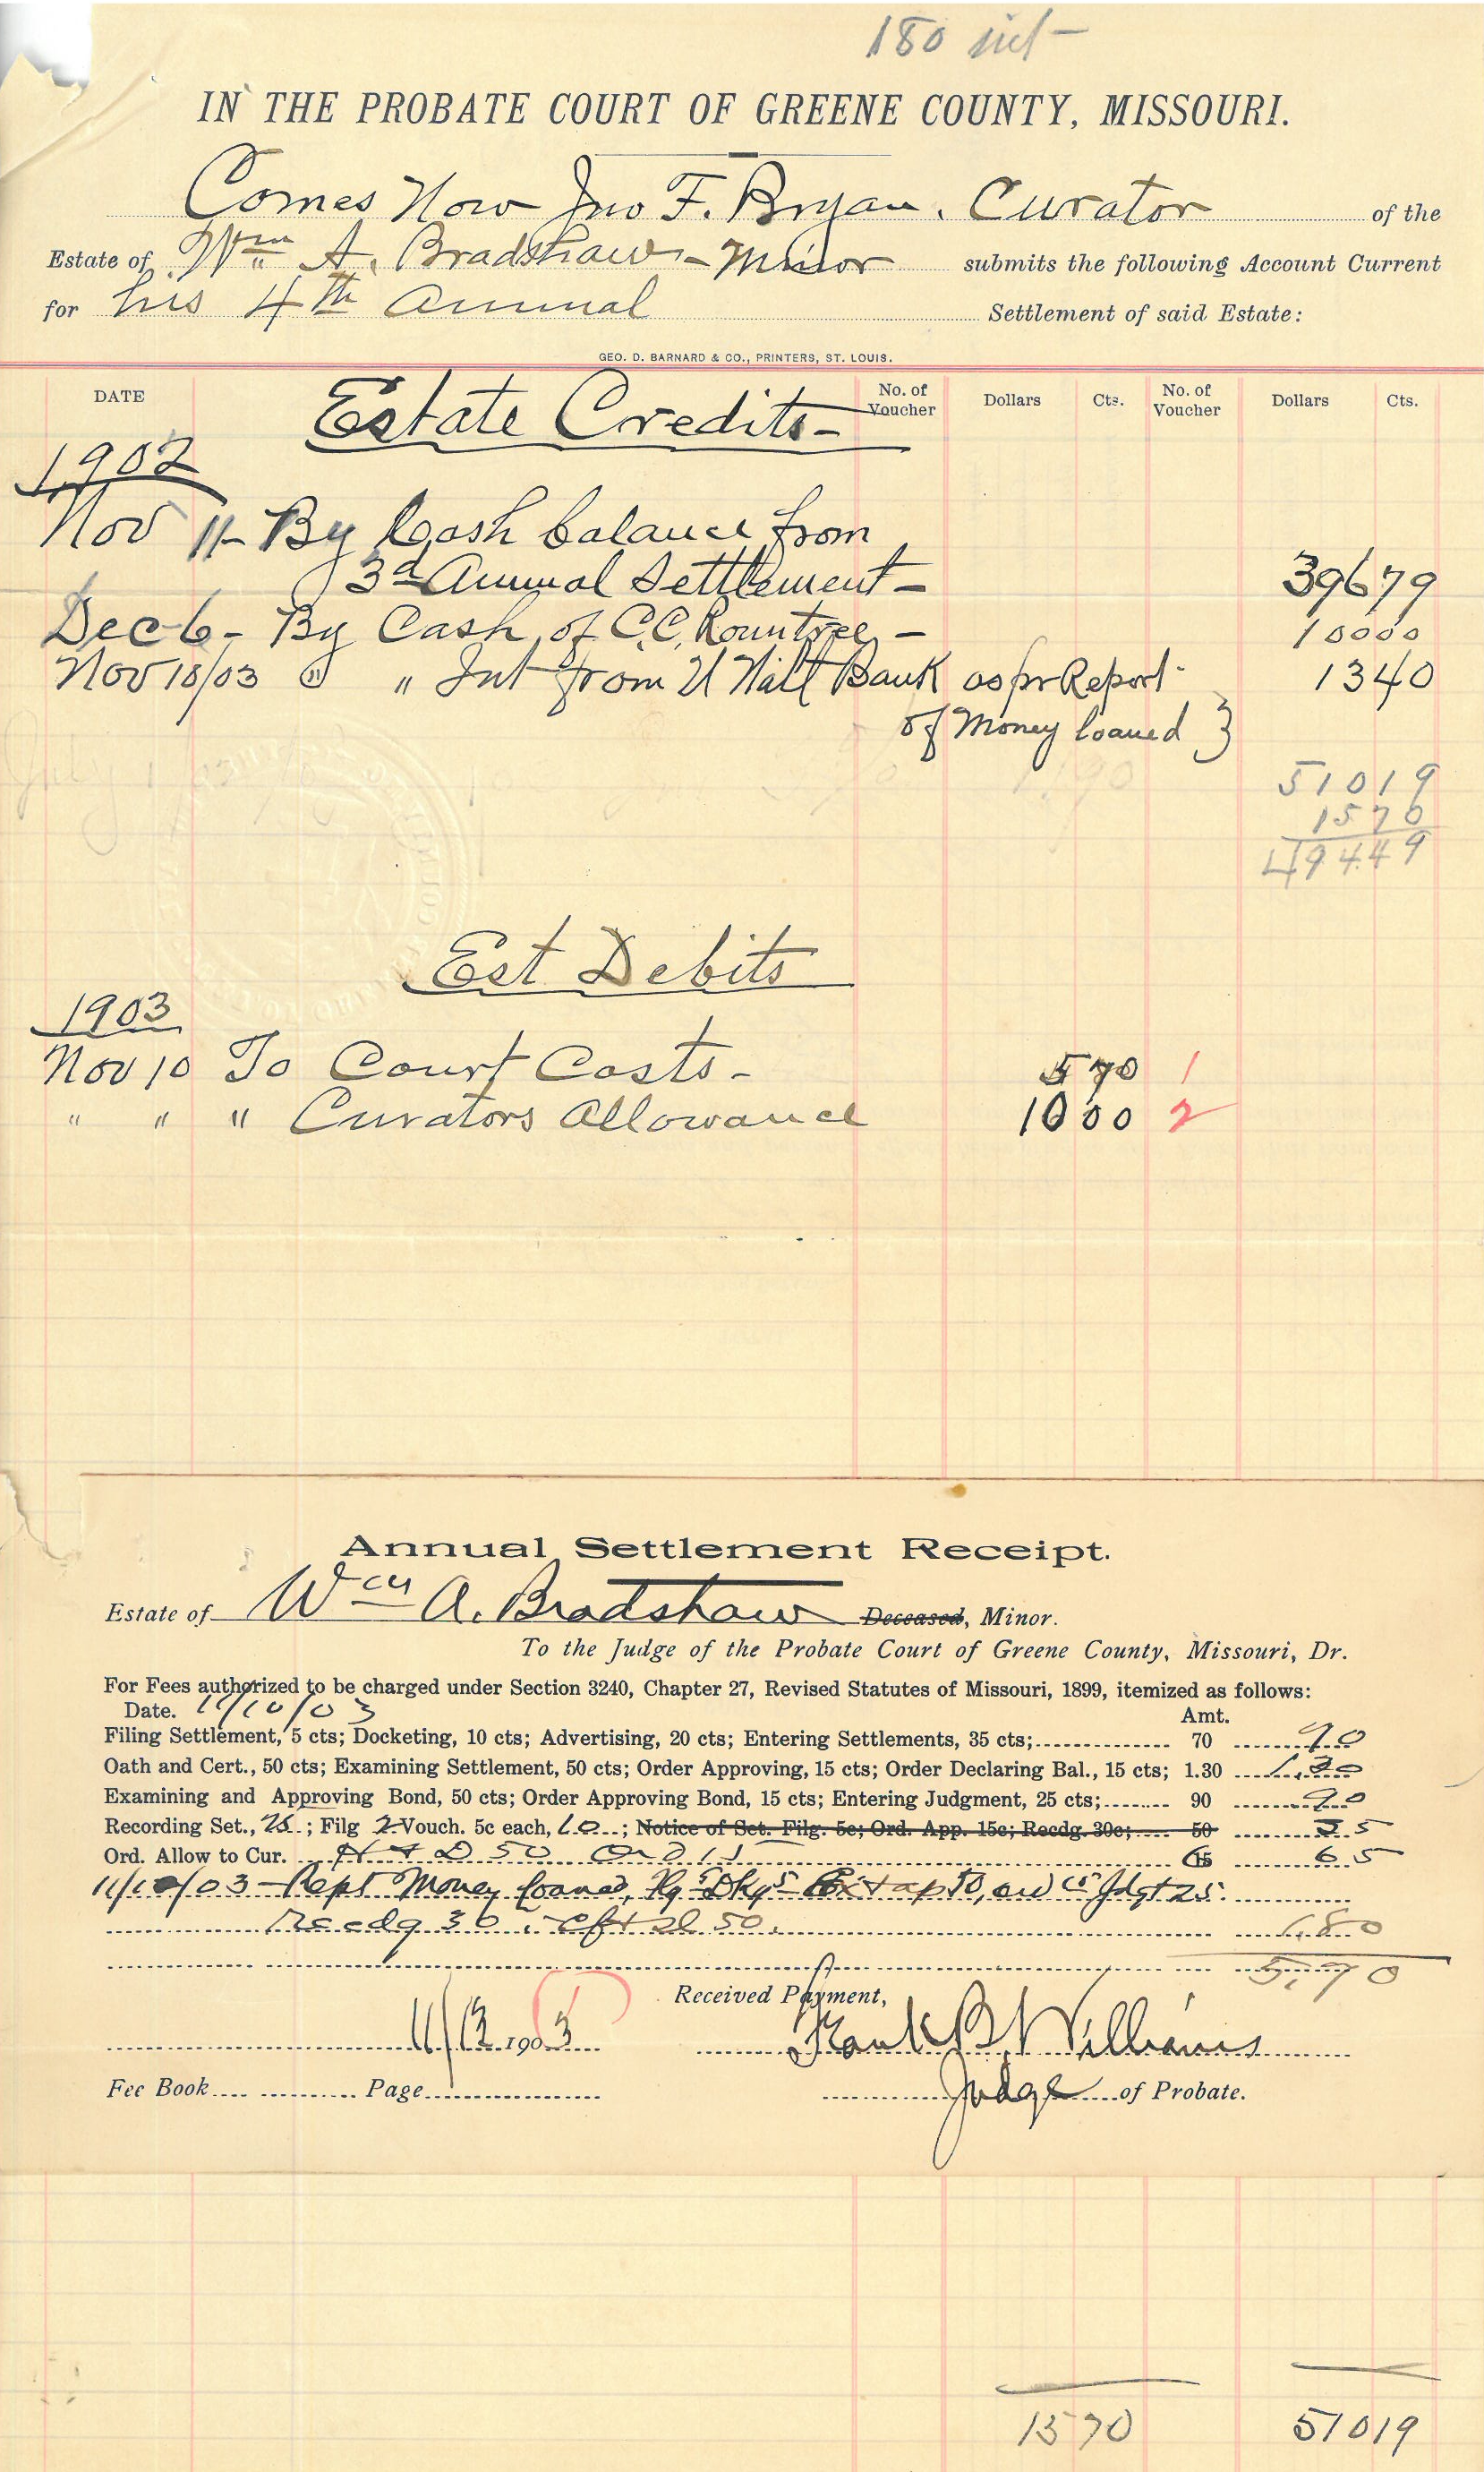 180 int -
IN THE PROBATE COURT OF GREENE COUNTY, MISSOURI.
Comes Now Jno F. Bryan. Curator of the
Estate of Wm A. Bradshaw - Minor submits the following Account Current
for his 4th Annual Settlement of said Estate:
GEO. D. BARNARD & CO., PRINTERS, ST. LOUIS.
DATE No. of Voucher Dollars Cts. No. of Voucher Dollars Cts.
Estate Credits -
1902
Nov 11 - By Cash balance from
3d Annual Settlement - 396 79
Dec 6 - By Cash of C.C. Rountree - 100 00
Nov 10/03 " " Int from U Natl Bank as pr Report 13 40
of Money loaned }
510 19
15 70
494 49
Est Debits
1903
Nov 10 To Court Costs - 5 70 1
" " " Curators Allowance 10 00 2
Annual Settlement Receipt.
Estate of Wm A. Bradshaw Deceased, Minor.
To the Judge of the Probate Court of Greene County, Missouri, Dr.
For Fees authorized to be charged under Section 3240, Chapter 27, Revised Statutes of Missouri, 1899, itemized as follows:
Date. 11/10/03 Amt.
Filing Settlement, 5 cts; Docketing, 10 cts; Advertising, 20 cts; Entering Settlements, 35 cts; 70 70
Oath and Cert., 50 cts; Examining Settlement, 50 cts; Order Approving, 15 cts; Order Declaring Bal., 15 cts; 1.30 1.30
Examining and Approving Bond, 50 cts; Order Approving Bond, 15 cts; Entering Judgment, 25 cts; 90 90
Recording Set., 25; Filg 2 Vouch. 5c each, 10; Notice of Set. Filg. 5c; Ord. App. 15c; Recdg. 30c; 50 35
Ord. Allow to Cur. 50 Ord 15 15 65
11/10/03 - Rept Money loaned, 50, Jdgt 25.
Recdg 30. 50. 1.80
5.70
Received Payment,
11/13 1903 Frank B. Williams
Fee Book Page Judge of Probate.
15 70 510 19